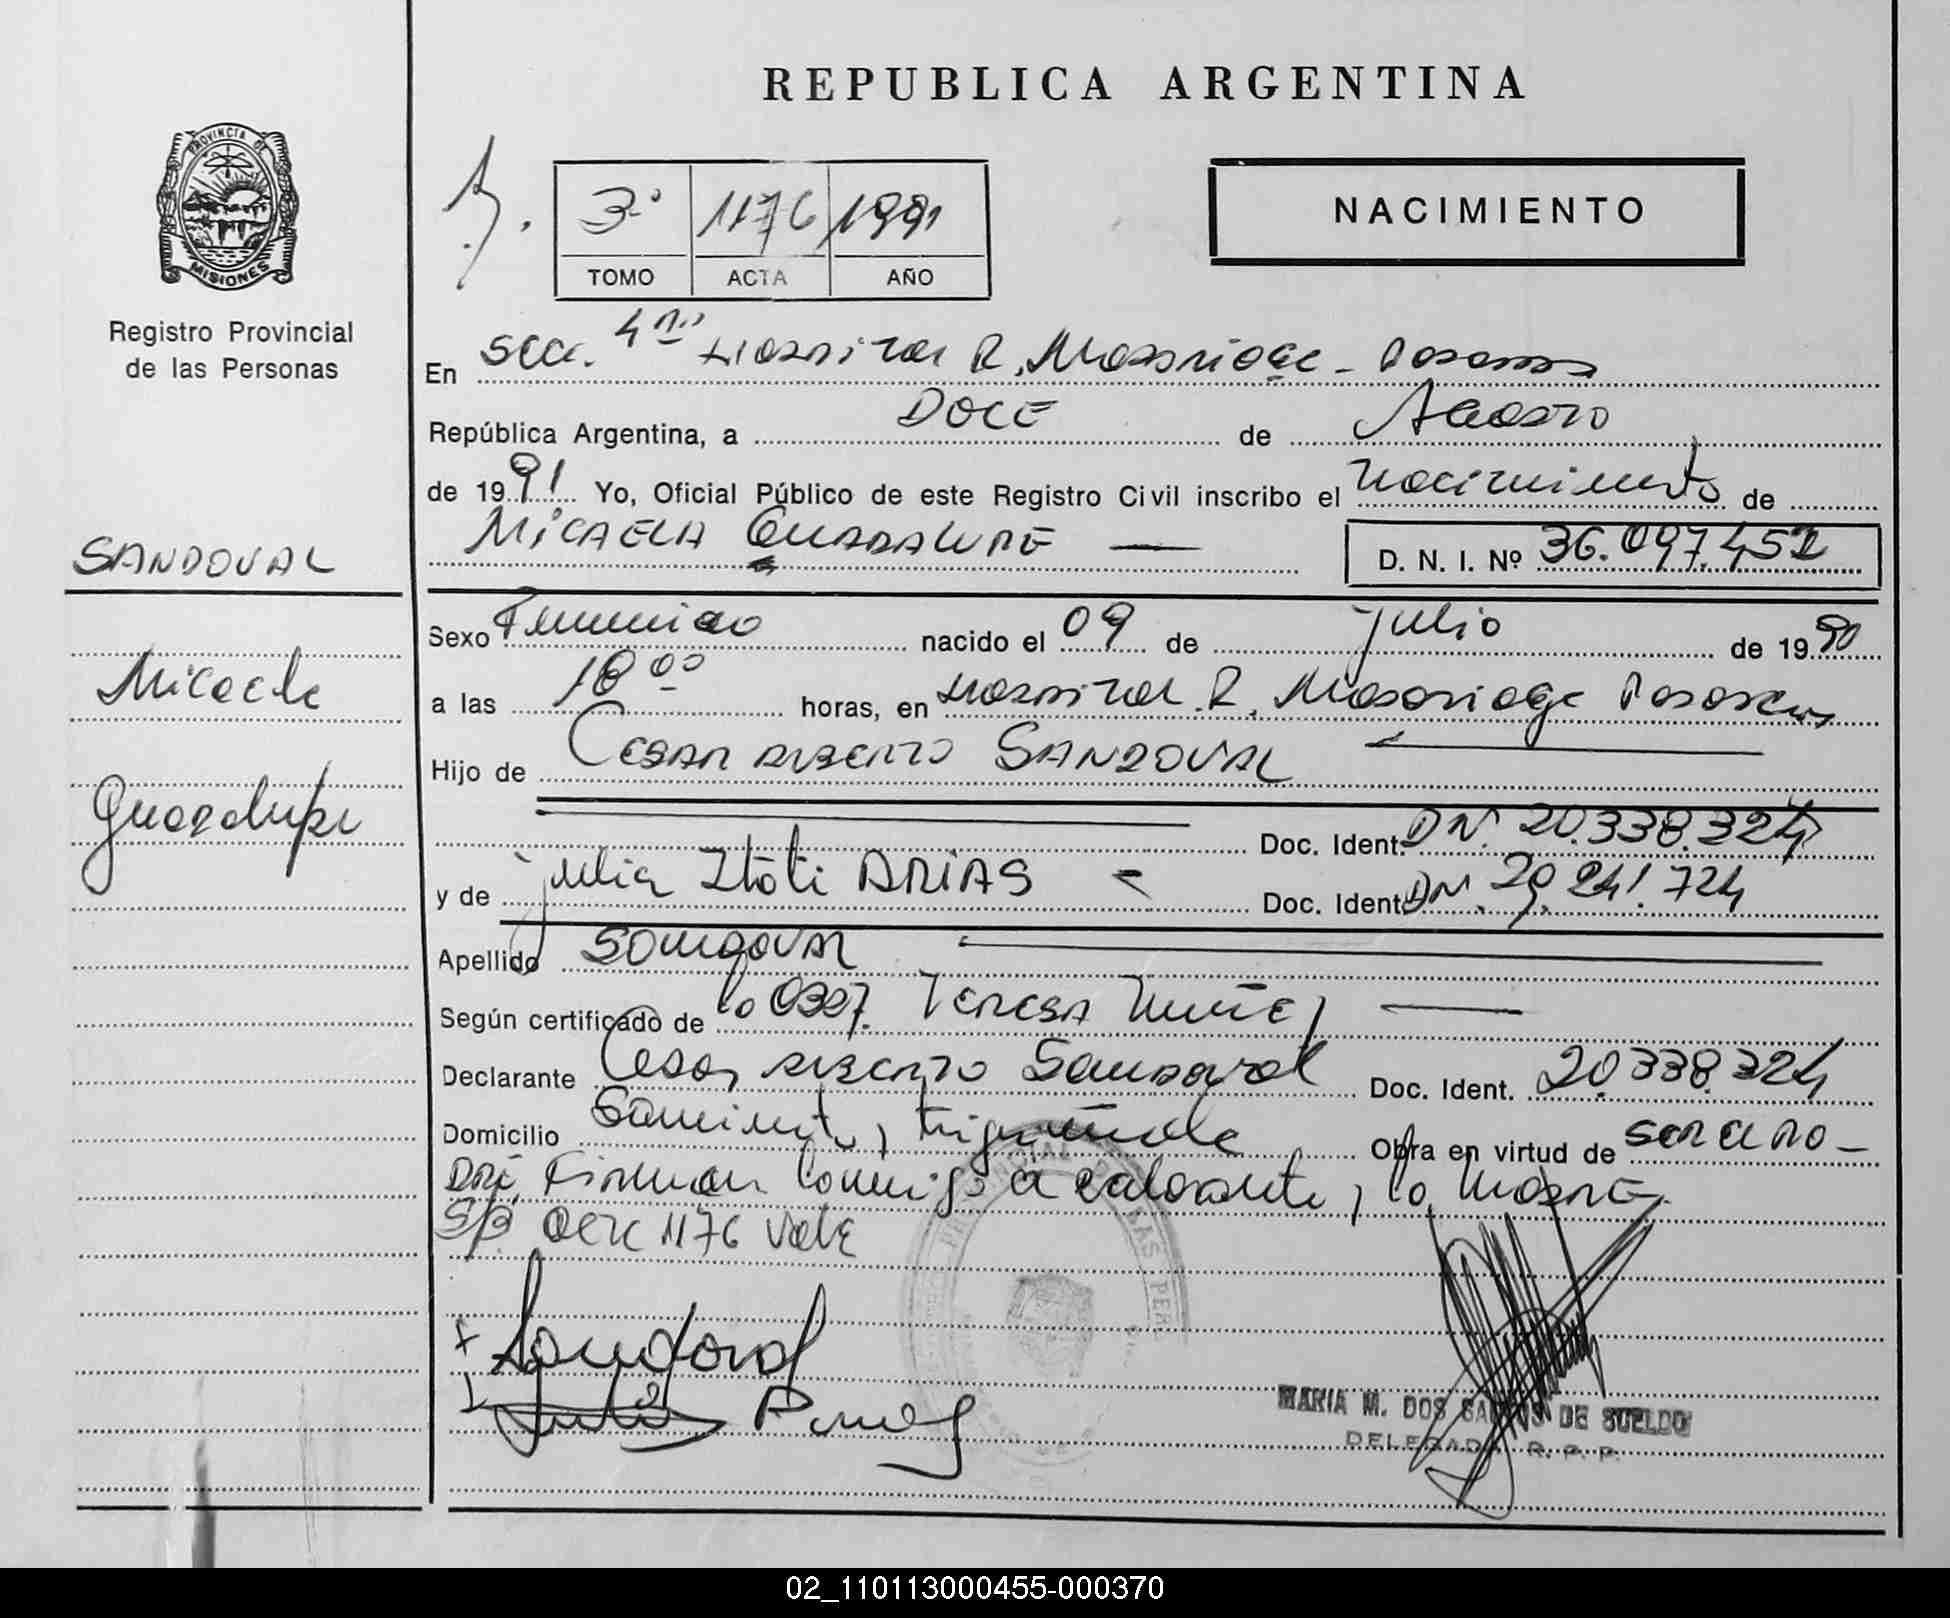 REPUBLICA ARGENTINA
PROVINCIA DE
MISIONES
Registro Provincial
de las Personas
3º 1176 1991
TOMO ACTA AÑO
NACIMIENTO
En Secc. 4ta Hospital R. Madariaga - Posadas
República Argentina, a DOCE de Agosto
de 1991 Yo, Oficial Público de este Registro Civil inscribo el nacimiento de
MICAELA GUADALUPE D. N. I. Nº 36.097.452
SANDOVAL
Micaela
Guadalupe
Sexo Femenino nacido el 09 de julio de 1990
a las 18 00 horas, en Hospital R. Madariaga Posadas
Hijo de CESAR ALBERTO SANDOVAL
Doc. Ident. DNI. 20.338.324
y de Julia Itati ARIAS Doc. Ident. DNI. 20.241.724
Apellido SANDOVAL
Según certificado de la Obst. TERESA Nuñez
Declarante Cesar ALBERTO Sandoval Doc. Ident. 20.338.324
Domicilio Obra en virtud de ser el pa-
dre, Firman conmigo el declarante, la madre,
S/B acta 1176 Vale
Sandoval
Julia
MARIA M. DOS SANTOS DE SUELDO
DELEGADA R. P. P.
02_110113000455-000370